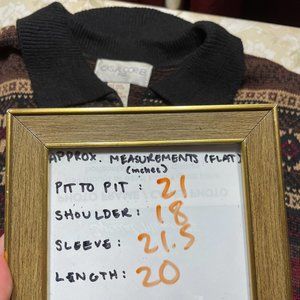 APPROX. MEASUREMENTS (FLAT)
(inches)
PIT TO PIT : 21
SHOULDER: 18
SLEEVE: 21.5
LENGTH: 20